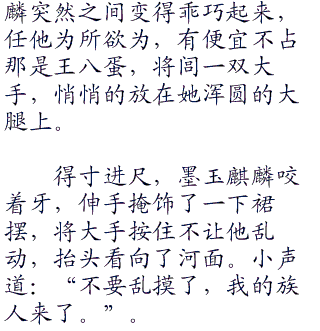 麟突然之间变得乖巧起来，
任他为所欲为，有便宜不占
那是王八蛋，将间一双大
手，悄悄的放在她浑圆的大
腿上。
得寸进尺，墨玉麒麟咬
着牙，伸手掩饰了一下裙
摆，将大手按住不让他乱
动，抬头看向了河面。小声
道：“不要乱摸了，我的族
人来了。”。